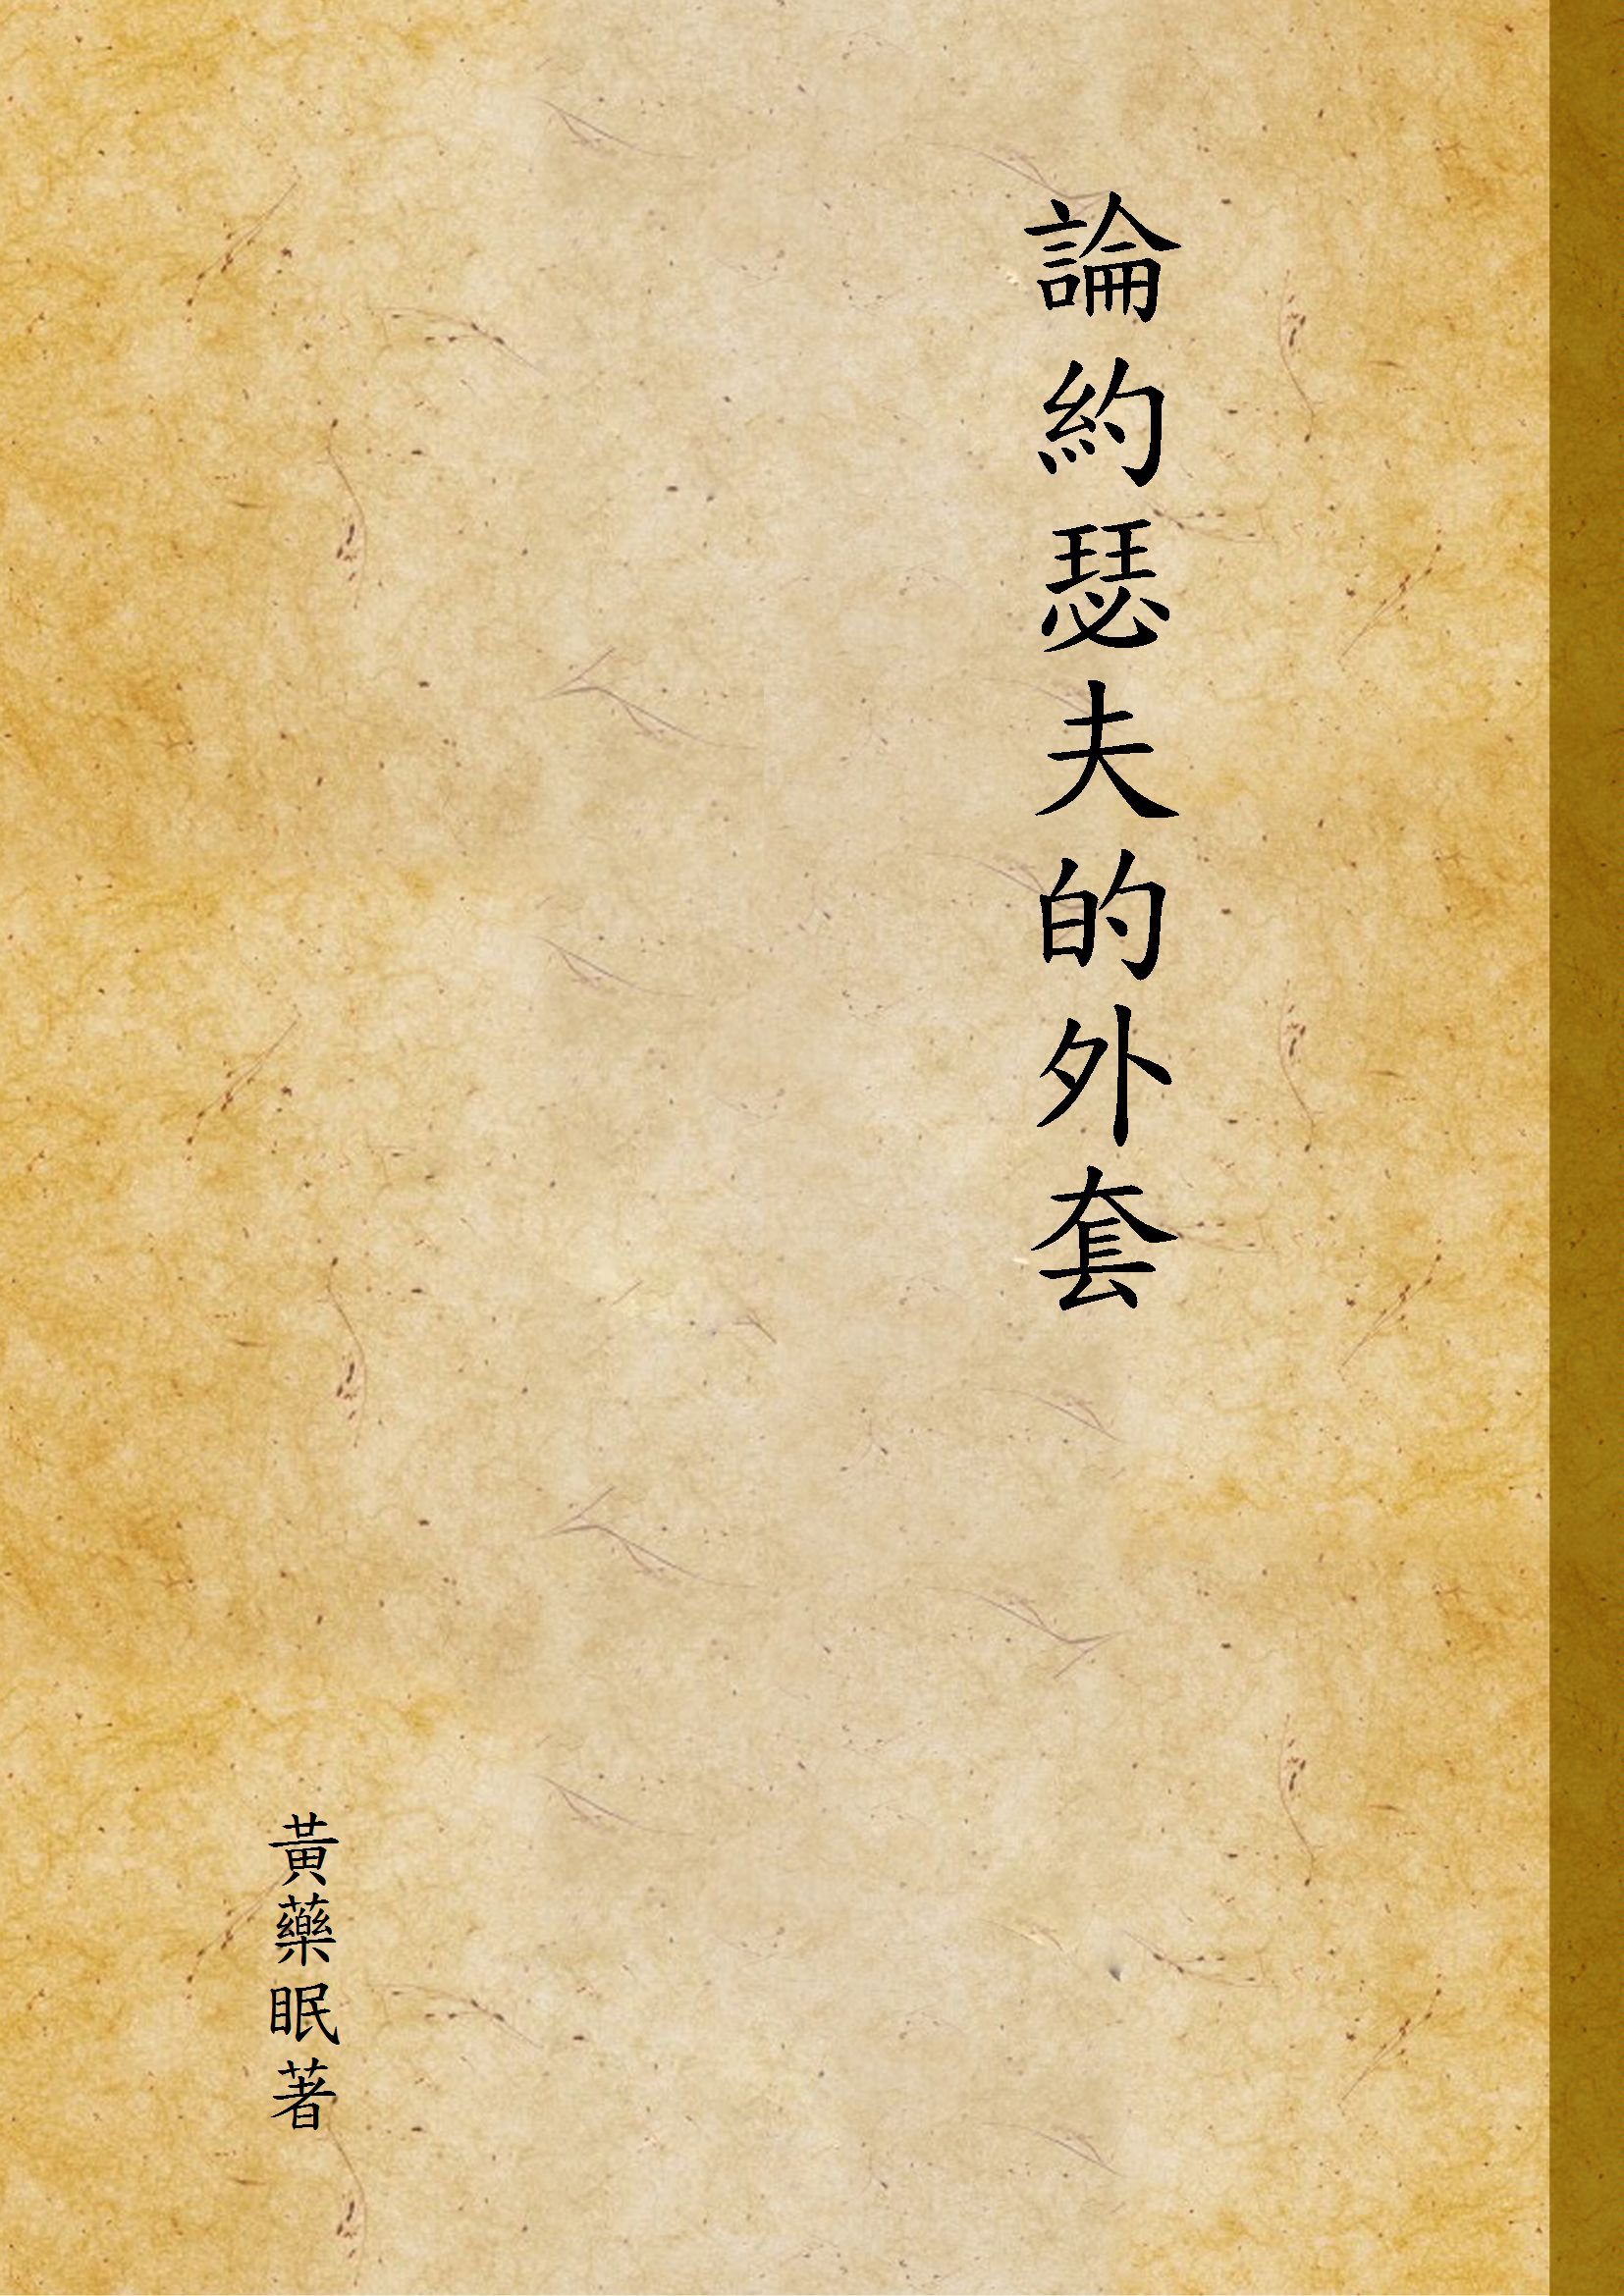 論約瑟夫的外套
黃藥眠著